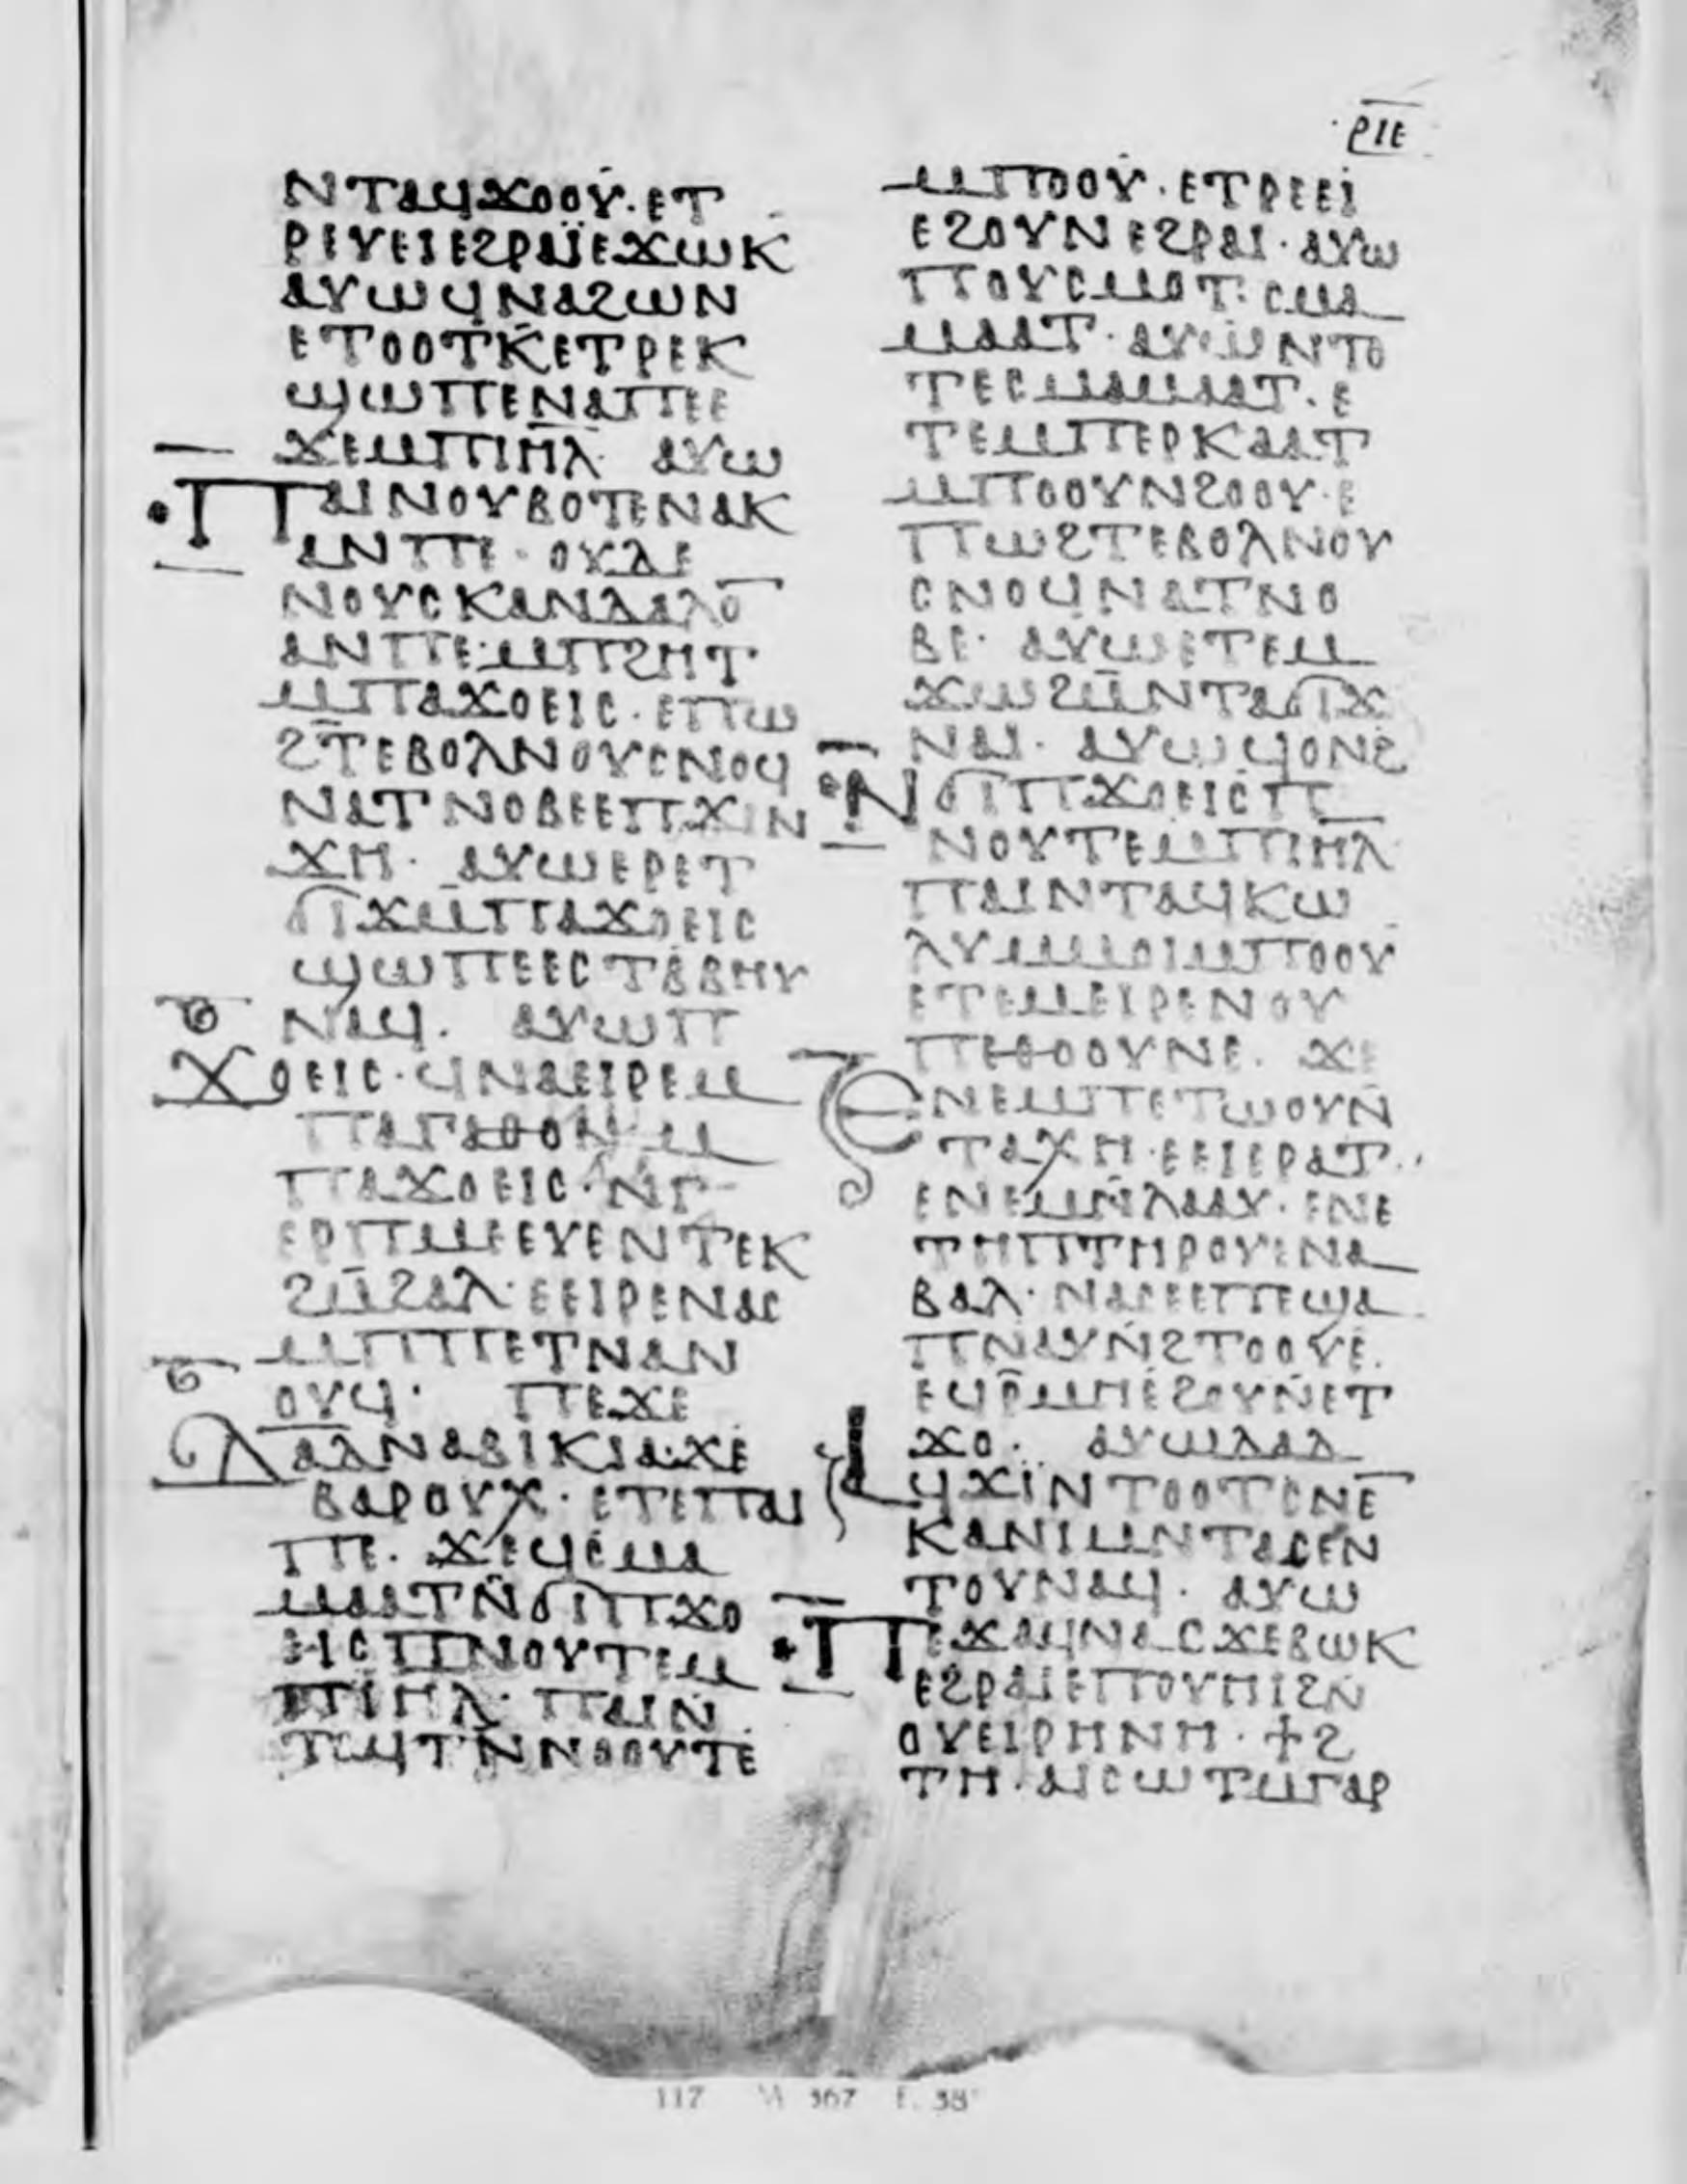 ⲣⲓⲉ
ⲛⲧⲁϥϫⲟⲟⲩ· ⲉⲧ
ⲣⲉⲩⲉⲓⲉϩⲣⲁⲓ̈ⲉϫⲱⲕ
ⲁⲩⲱϥⲛⲁϩⲱⲛ
ⲉⲧⲟⲟⲧⲕ̅ⲉⲧⲣⲉⲕ
ϣⲱⲡⲉⲛⲁⲡⲉ
ϫⲉⲙⲡⲓⲏ̅ⲗ̅· ⲁⲩⲱ
ⲡⲁⲓⲛⲟⲩⲃⲟⲧⲉⲛⲁⲕ
ⲁⲛⲡⲉ· ⲟⲩⲇⲉ
ⲛⲟⲩⲥⲕⲁⲛⲇⲁⲗⲟ̅
ⲁⲛⲡⲉ· ⲙⲡϩⲏⲧ
ⲙⲡⲁϫⲟⲉⲓⲥ· ⲉⲡⲱ
ϩ̅ⲧⲉⲃⲟⲗⲛⲟⲩⲥⲛⲟϥ
ⲛⲁⲧⲛⲟⲃⲉⲉⲡϫⲓⲛ
ϫⲏ· ⲁⲩⲱⲉⲣⲉⲧ
ϭⲓϫⲙ̅ⲡⲁϫⲟⲉⲓⲥ
ϣⲱⲡⲉⲉⲥⲧⲃ̅ⲃⲏⲩ
ⲛⲁϥ· ⲁⲩⲱⲡ
ϫⲟⲉⲓⲥ· ϥⲛⲁⲉⲓⲣⲉⲙ
ⲡⲁⲅⲁⲑⲟⲛⲙ
ⲡⲁϫⲟⲉⲓⲥ· ⲛⲅ
ⲉⲣⲡⲙⲉⲉⲩⲉⲛⲧⲉⲕ
ϩⲙ̅ϩⲁⲗ· ⲉⲉⲓⲣⲉⲛⲁⲥ
ⲙⲡⲡⲉⲧⲛⲁⲛ
ⲟⲩϥ· ⲡⲉϫⲉ
ⲇⲁⲇⲛⲁⲃⲓⲕⲓⲁ· ϫⲉ
ⲃⲁⲣⲟⲩⲭ· ⲉⲧⲉⲡⲁⲓ
ⲡⲉ· ϫⲉϥⲥⲙⲁ
ⲙⲁⲁⲧⲛ̅ϭⲓⲡϫⲟ
ⲉⲓⲥⲡⲛⲟⲩⲧⲉⲙ
ⲡⲓⲏ̅ⲗ̅· ⲡⲁⲓⲛ
ⲧⲁϥⲧⲛ̅ⲛⲟⲟⲩⲧⲉ
ⲙⲡⲟⲟⲩ· ⲉⲧⲣⲉⲉⲓ
ⲉϩⲟⲩⲛⲉϩⲣⲁⲓ· ⲁⲩⲱ
ⲡⲟⲩⲥⲙⲟⲧ· ⲥⲙⲁ
ⲙⲁⲁⲧ· ⲁⲩⲱⲛⲧⲟ
ⲧⲉⲥⲙⲁⲙⲁⲁⲧ· ⲉ
ⲧⲉⲙⲡⲉⲣⲕⲁⲁⲧ
ⲙⲡⲟⲟⲩⲛϩⲟⲟⲩ· ⲉ
ⲡⲱϩⲧⲉⲃⲟⲗⲛⲟⲩ
ⲥⲛⲟϥⲛⲁⲧⲛⲟ
ⲃⲉ· ⲁⲩⲱⲉⲧⲉⲙ
ϫⲱϩⲙ̅ⲛⲧⲁϭⲓϫ
ⲛⲁⲓ· ⲁⲩⲱϥⲟⲛϩ
ⲛϭⲓⲡϫⲟⲉⲓⲥⲡ
ⲛⲟⲩⲧⲉⲙⲡⲓⲏ̅ⲗ̅
ⲡⲁⲓⲛⲧⲁϥⲕⲱ
ⲗⲩⲙⲙⲟⲓⲙⲡⲟⲟⲩ
ⲉⲧⲉⲙⲉⲓⲣⲉⲛⲟⲩ
ⲡⲉⲑⲟⲟⲩⲛⲉ· ϫⲉ
ⲉⲛⲉⲙⲡⲉⲧⲱⲟⲩⲛ
ⲧⲁⲭⲏ· ⲉⲉⲓⲉⲣⲁⲧ·
ⲉⲛⲉⲙⲛ̅ⲗⲁⲁⲩ· ⲉⲛⲉ
ⲧⲏⲡⲧⲏⲣⲟⲩⲉⲛⲁ
ⲃⲁⲗ· ⲛⲁⲥⲉⲉⲡⲉϣⲁ
ⲡⲛⲁⲩⲛ̅ϩⲧⲟⲟⲩⲉ·
ⲉϥⲣ̅ⲙⲏⲉϩⲟⲩⲛⲉⲧ
ϫⲟ· ⲁⲩⲱⲇⲁⲇ
ⲁϥϫⲓⲛⲧⲟⲟⲧⲥⲛⲉ̅
ⲕⲁⲛⲓⲙⲛⲧⲁⲥⲉⲛ
ⲧⲟⲩⲛⲁϥ· ⲁⲩⲱ
ⲡⲉϫⲁϥⲛⲁⲥϫⲉⲃⲱⲕ
ⲉϩⲣⲁⲓⲉⲡⲟⲩⲏⲓϩⲛ
ⲟⲩⲉⲓⲣⲏⲛⲏ· ϯϩ
ⲧⲏ· ⲁⲓⲥⲱⲧⲙⲅⲁⲣ
117 M 567 F. 58